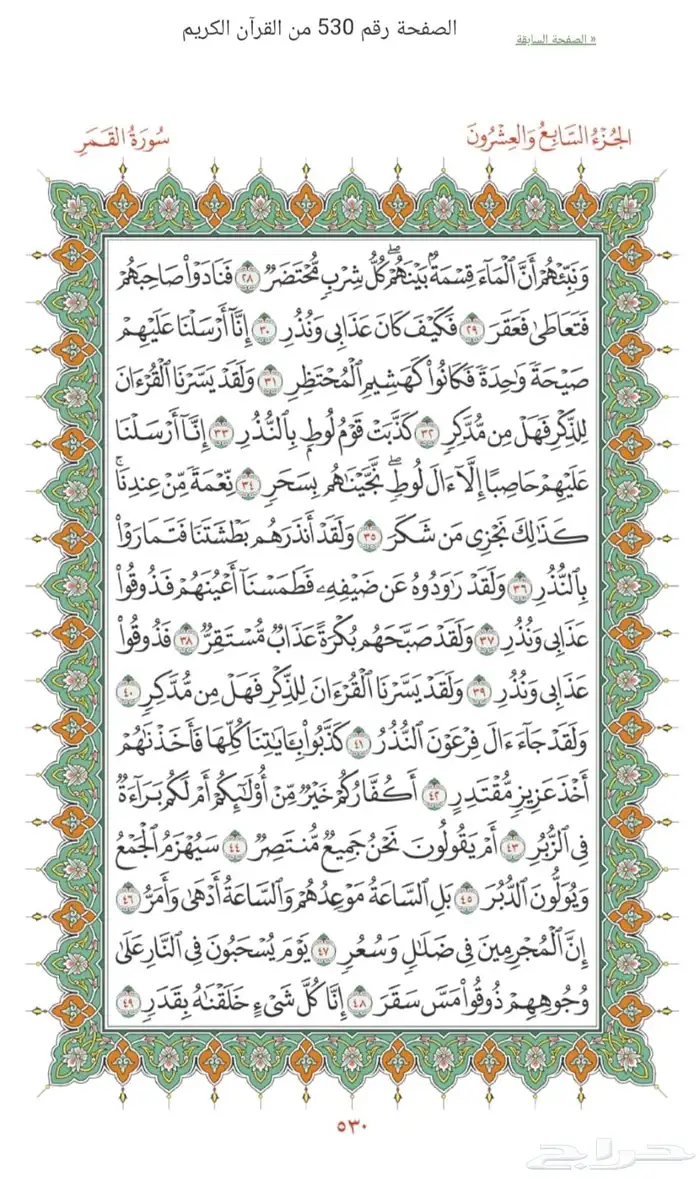 الصفحة رقم 530 من القرآن الكريم
« الصفحة السابقة
الجُزْءُ السَّابِعُ وَالعِشْرُونَ
سُورَةُ القَمَرِ
وَنَبِّئْهُمْ أَنَّ ٱلْمَآءَ قِسْمَةٌۢ بَيْنَهُمْ ۖ كُلُّ شِرْبٍ مُّحْتَضَرٌ ٢٨ فَنَادَوْا۟ صَاحِبَهُمْ
فَتَعَاطَىٰ فَعَقَرَ ٢٩ فَكَيْفَ كَانَ عَذَابِى وَنُذُرِ ٣٠ إِنَّآ أَرْسَلْنَا عَلَيْهِمْ
صَيْحَةً وَٰحِدَةً فَكَانُوا۟ كَهَشِيمِ ٱلْمُحْتَظِرِ ٣١ وَلَقَدْ يَسَّرْنَا ٱلْقُرْءَانَ
لِلذِّكْرِ فَهَلْ مِن مُّدَّكِرٍ ٣٢ كَذَّبَتْ قَوْمُ لُوطٍۭ بِٱلنُّذُرِ ٣٣ إِنَّآ أَرْسَلْنَا
عَلَيْهِمْ حَاصِبًا إِلَّآ ءَالَ لُوطٍ ۖ نَّجَّيْنَٰهُم بِسَحَرٍ ٣٤ نِّعْمَةً مِّنْ عِندِنَا ۚ
كَذَٰلِكَ نَجْزِى مَن شَكَرَ ٣٥ وَلَقَدْ أَنذَرَهُم بَطْشَتَنَا فَتَمَارَوْا۟
بِٱلنُّذُرِ ٣٦ وَلَقَدْ رَٰوَدُوهُ عَن ضَيْفِهِۦ فَطَمَسْنَآ أَعْيُنَهُمْ فَذُوقُوا۟
عَذَابِى وَنُذُرِ ٣٧ وَلَقَدْ صَبَّحَهُم بُكْرَةً عَذَابٌ مُّسْتَقِرٌّ ٣٨ فَذُوقُوا۟
عَذَابِى وَنُذُرِ ٣٩ وَلَقَدْ يَسَّرْنَا ٱلْقُرْءَانَ لِلذِّكْرِ فَهَلْ مِن مُّدَّكِرٍ ٤٠
وَلَقَدْ جَآءَ ءَالَ فِرْعَوْنَ ٱلنُّذُرُ ٤١ كَذَّبُوا۟ بِـَٔايَٰتِنَا كُلِّهَا فَأَخَذْنَٰهُمْ
أَخْذَ عَزِيزٍ مُّقْتَدِرٍ ٤٢ أَكُفَّارُكُمْ خَيْرٌ مِّنْ أُو۟لَٰٓئِكُمْ أَمْ لَكُم بَرَآءَةٌ
فِى ٱلزُّبُرِ ٤٣ أَمْ يَقُولُونَ نَحْنُ جَمِيعٌ مُّنتَصِرٌ ٤٤ سَيُهْزَمُ ٱلْجَمْعُ
وَيُوَلُّونَ ٱلدُّبُرَ ٤٥ بَلِ ٱلسَّاعَةُ مَوْعِدُهُمْ وَٱلسَّاعَةُ أَدْهَىٰ وَأَمَرُّ ٤٦
إِنَّ ٱلْمُجْرِمِينَ فِى ضَلَٰلٍ وَسُعُرٍ ٤٧ يَوْمَ يُسْحَبُونَ فِى ٱلنَّارِ عَلَىٰ
وُجُوهِهِمْ ذُوقُوا۟ مَسَّ سَقَرَ ٤٨ إِنَّا كُلَّ شَىْءٍ خَلَقْنَٰهُ بِقَدَرٍ ٤٩
٥٣٠
حراج